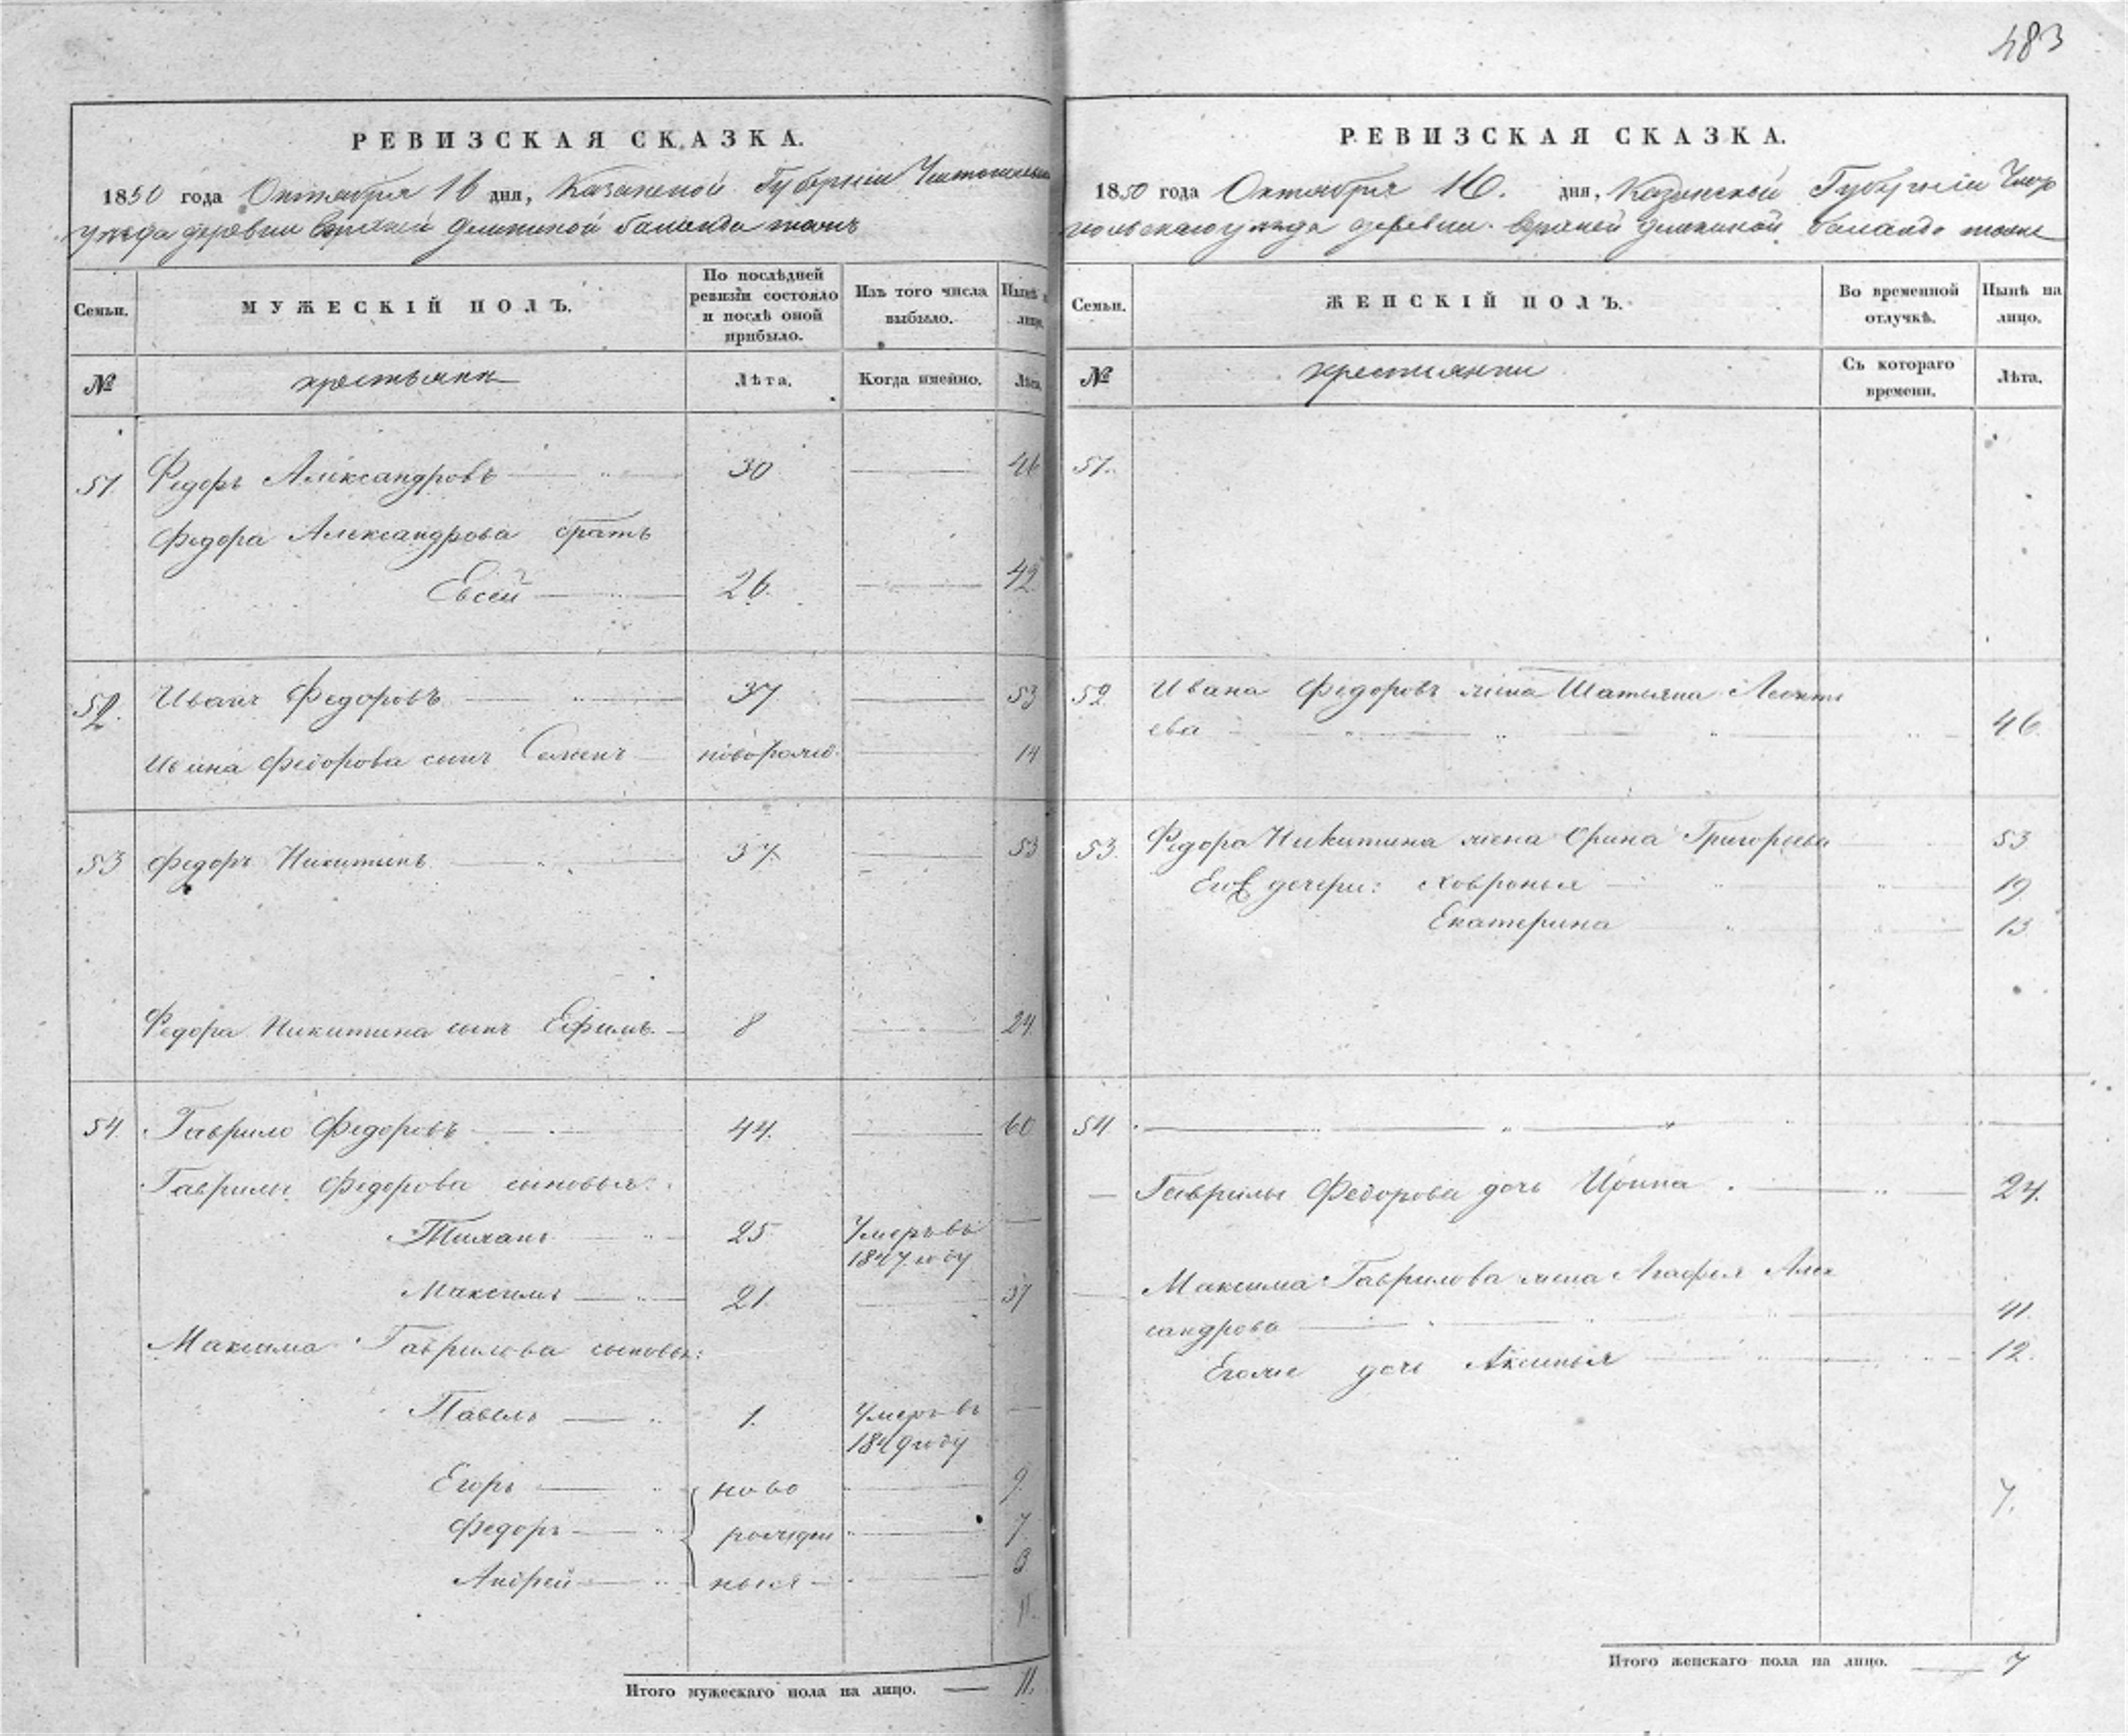 483
РЕВИЗСКАЯ СКАЗКА.
1850 года Октября 16 дня, Казанской Губерніи
уезда деревни
Семьи.
МУЖЕСКІЙ ПОЛЪ.
По послѣдней
ревизіи состояло
и послѣ оной
прибыло.
Изъ того числа
выбыло.
Нынѣ
лицо.
№
крестьяни
Лѣта.
Когда имейно.
Лѣта.
51. Федоръ Александровъ 30 46
Федора Александрова братъ
Евсей 26. 42
52. Иванъ Федоровъ 37 53
Ивана Федорова сынъ Семенъ новорожд. 14
53 Федоръ Никитинъ 37. 53
Федора Никитина сынъ Ефимъ. 8 24.
54. Гаврило Федоровъ 44. 60
Гаврилы Федорова сыновья:
25 Умеръ въ
1847 году
Максимъ 21. 37
Максима Гаврилова сыновья:
Павелъ 1. Умеръ въ
1849 году
Егоръ ново 9.
Федоръ рожден 7
Андрей ныя 3
11.
Итого мужескаго пола на лицо. 11.
РЕВИЗСКАЯ СКАЗКА.
1850 года Октября 16. дня, Казанской Губерніи Чисто
польскаго уезда деревни
Семьи.
ЖЕНСКІЙ ПОЛЪ.
Во временной
отлучкѣ.
Нынѣ на
лицо.
№
крестьянки
Съ котораго
времени.
Лѣта.
51.
52 Ивана Федорова жена Татьяна Леонть
ева 46.
53. Федора Никитина жена Орина Григорьева 53
Его дочери: Ховронья 19
Екатерина 13
54.
Гаврилы Федорова дочь Ирина. 24.
Максима Гаврилова жена Агафья Алек
сандрова 41.
Егоже дочь Аксинья 12.
7.
Итого женскаго пола на лицо. 7